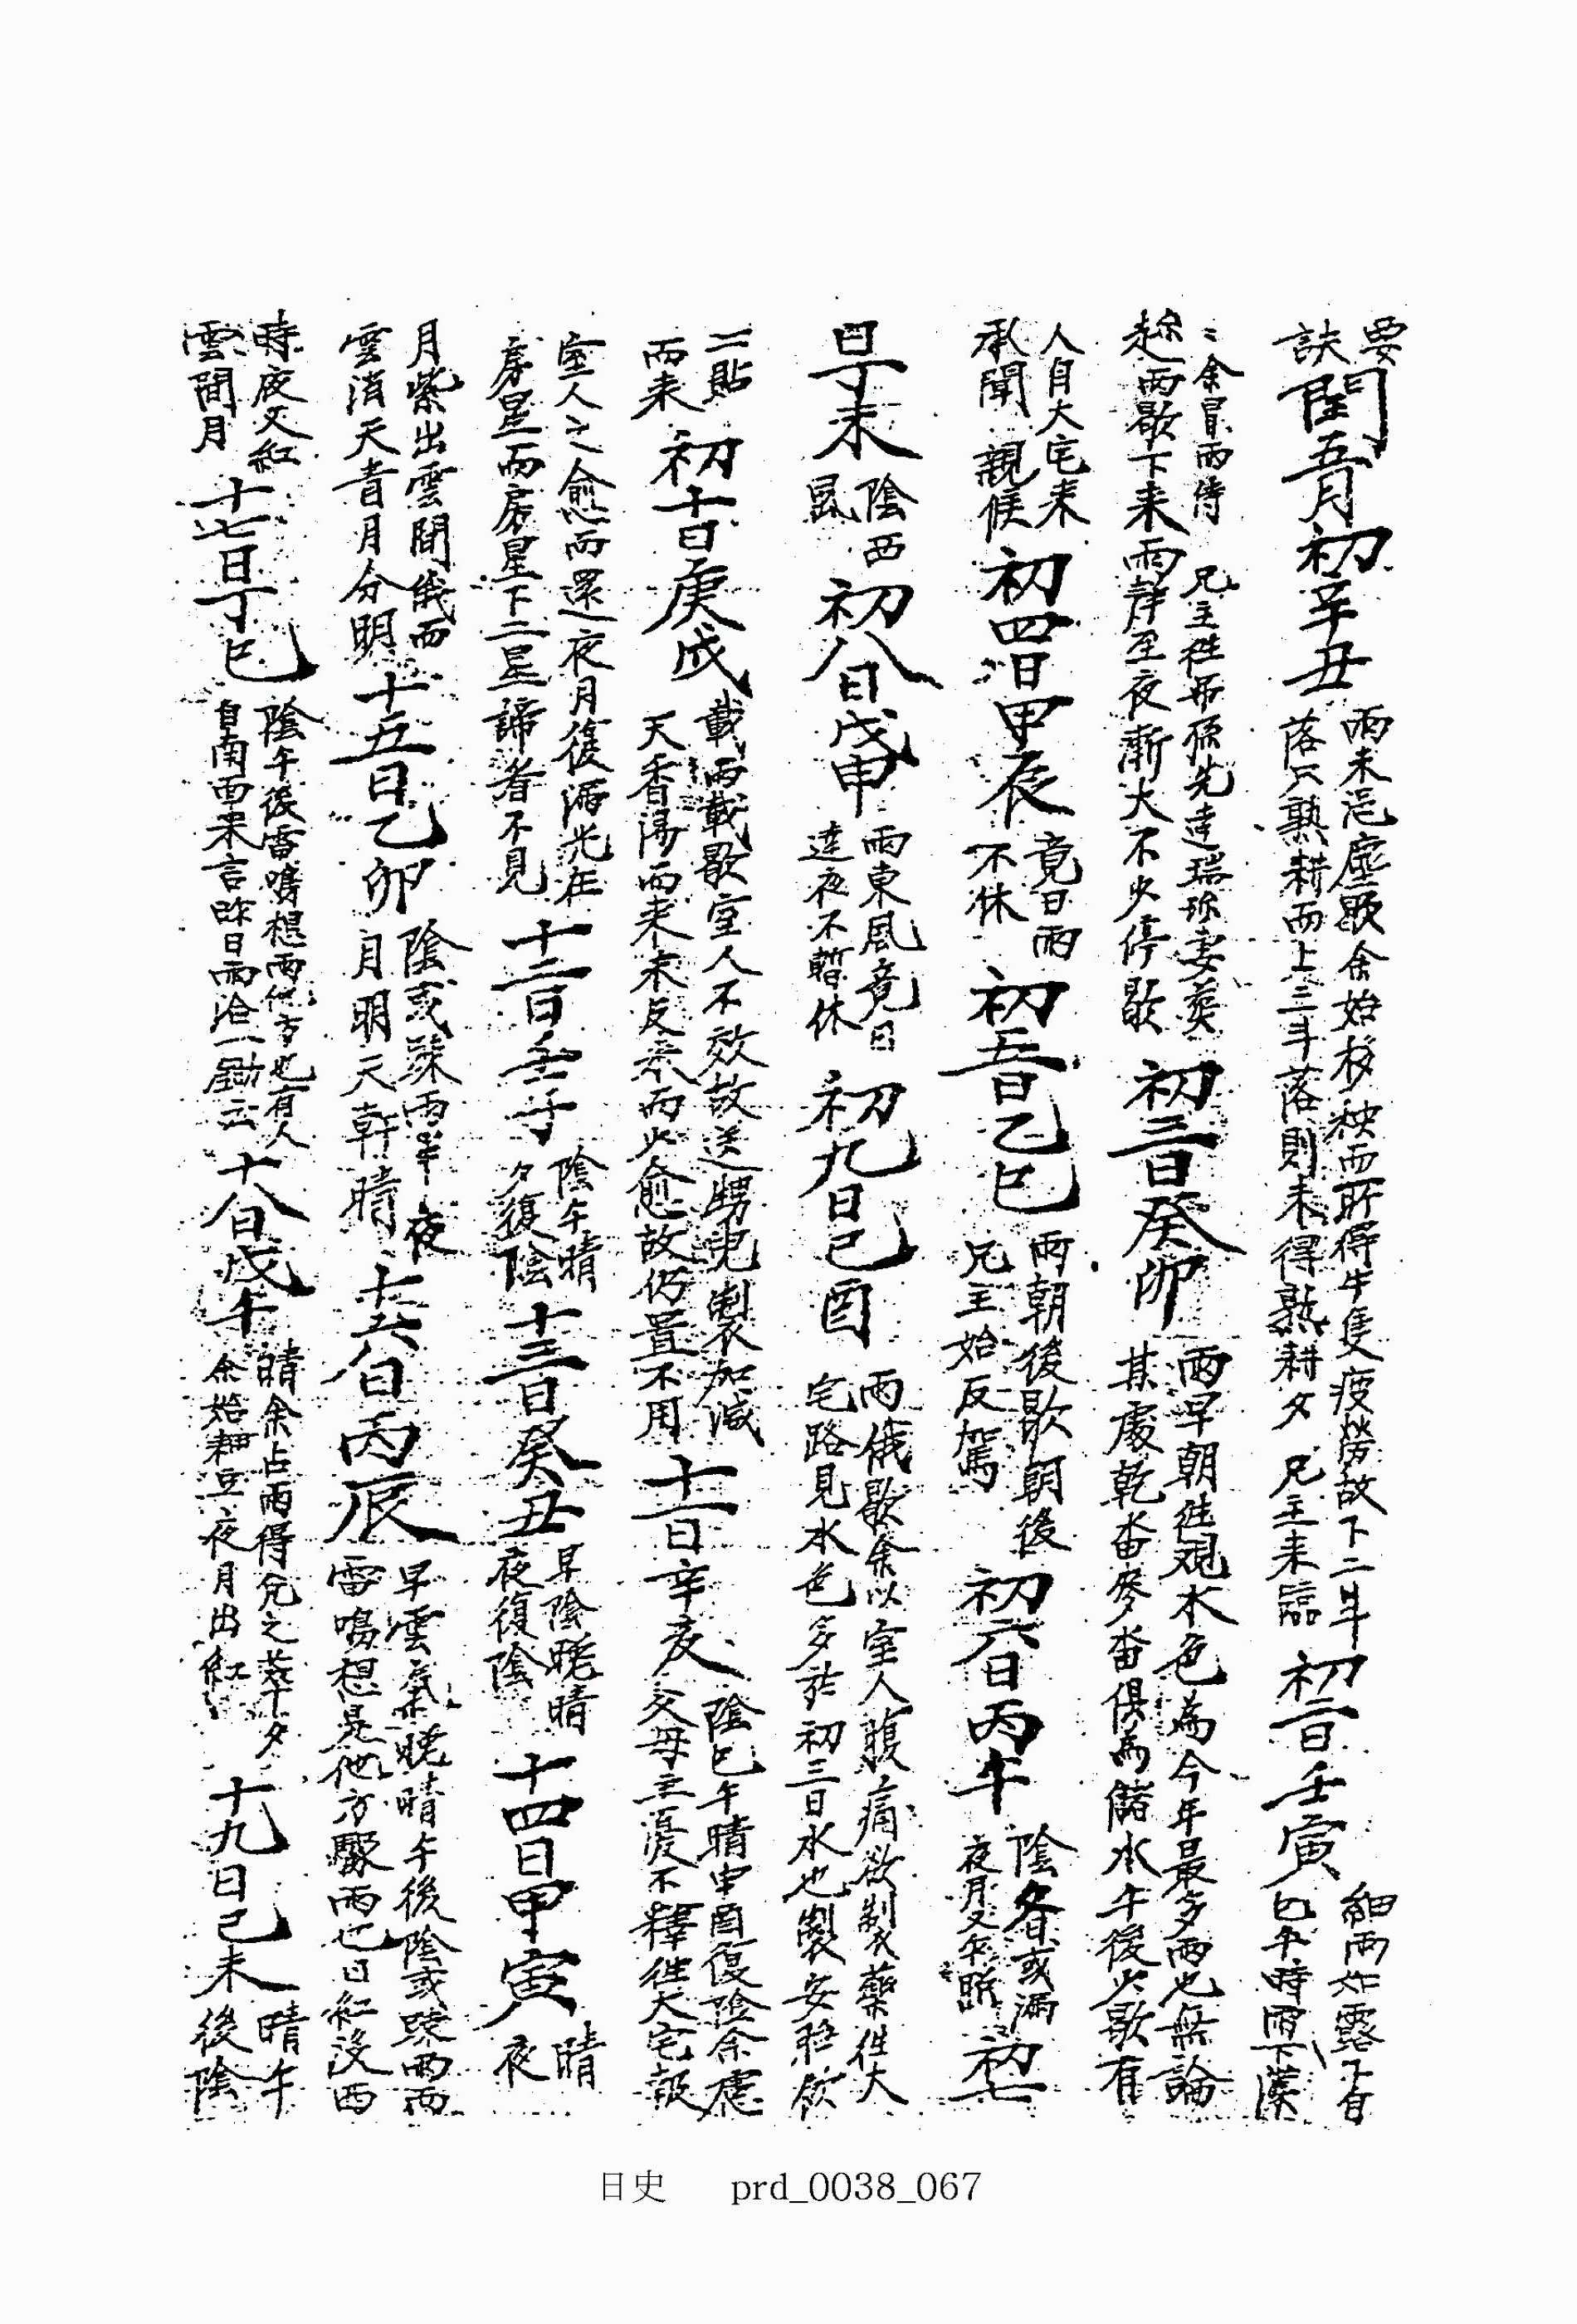 要
訣 閏五月 初一辛丑 雨未浥塵歇余始移秧而所得牛隻疲勞故下二斗
落只熟耕而上三斗落則未得熟耕夕 兄主來臨 初二日壬寅 細雨如露下自
巳午時雨下
余冒雨侍 兄主往 妻葬
趁雨歇下來雨 至夜漸大不少停歇 初三日癸卯 雨早朝往觀水色爲今年最多雨也無論
某處乾畓麥畓俱爲儲水午後少歇有
人自大宅來
承聞 親候 初四日甲辰 竟日雨
不休 初五日乙巳 雨朝後歇朝後
兄主始反駕 初六日丙午 陰 或漏
夜月又午 初七
日丁未 陰西
風 初八日戊申 雨東風竟日
達夜不暫休 初九日己酉 雨俄歇余以室人腹痛欲製藥往大
宅路見水色多於初三日水也製安胎飮
二貼
而來 初十日庚戌 載雨載歇室人不效故送甥兒製加減
天香湯而來未反來而少愈故仍置不用 十一日辛亥 陰巳午晴申酉復陰余慮
父母主憂不釋往大宅報
室人之愈而還夜月復漏光在
房星而房星下二星諦看不見 十二日壬子 陰午晴
夕復陰 十三日癸丑 早陰晩晴
夜復陰 十四日甲寅 晴
夜
月紫出雲間俄而
雲消天青月分明 十五日乙卯 陰或疎雨半夜
月明天乾晴 十六日丙辰 早雲氣晩晴午後陰或疎雨而
雷鳴想是他方驟雨也日紅沒西
時夜又紅
雲間月 十七日丁巳 陰午後雷鳴想雨他方也有人
自南面來言昨日雨洽一鋤云 十八日戊午 晴余占雨得兌之萃夕
余始耕豆夜月出紅 十九日己未 晴午
後陰
日史 prd_0038_067